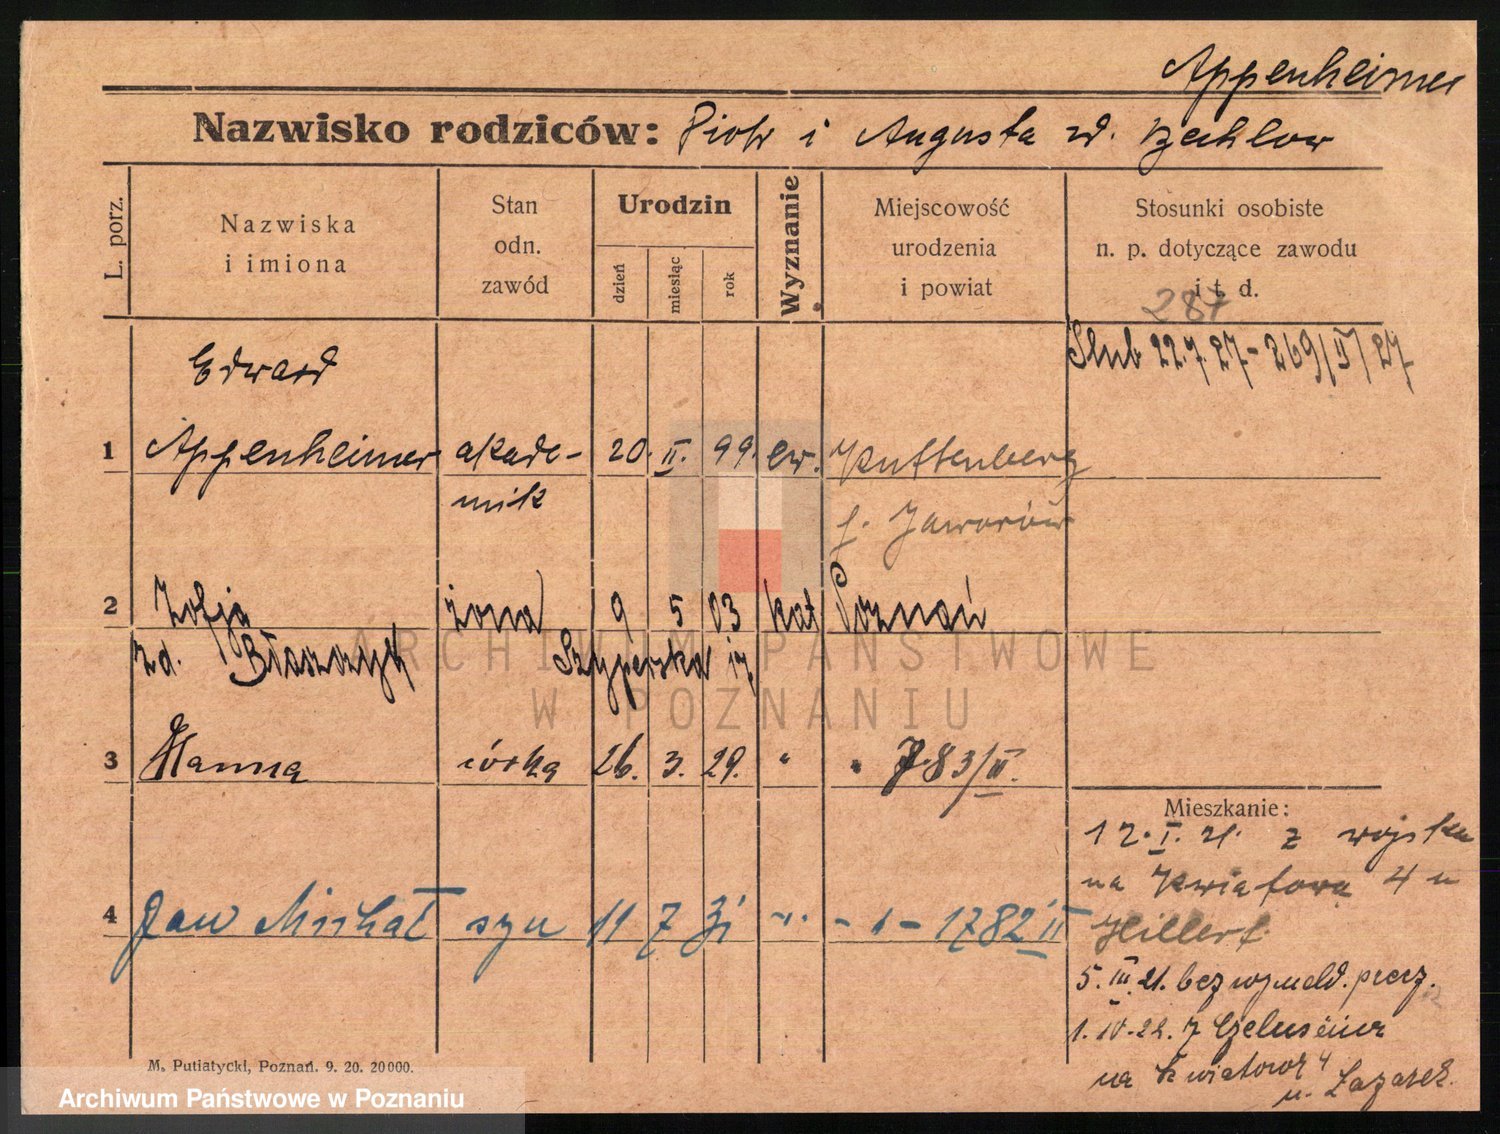 Appenheimer
Nazwisko rodziców: Piotr i Augusta zd.
L. porz.
Nazwiska
i imiona
Stan
odn.
zawód
Urodzin
dzień
miesiąc
rok
Wyznanie
Miejscowość
urodzenia
i powiat
Stosunki osobiste
n. p. dotyczące zawodu
i t. d.
287
Ślub 22.7.27 - 269/II/27
Edward
1 Appenheimer akade- 20. II. 99. ew. Kuttenberg
mik
p. Jaworów
2 Zofja żona 9 5 03 kat Poznań
zd. Błaszczyk Szyperska 17
3 Hanna córka 26. 3. 29. " " 783/II.
Mieszkanie:
12. I. 21. z wojska
na Kwiatową 4 u
Hillert.
4 Jan Michał syn 11 7 31 -"- -"- 1782 II
5. III. 21. bez wymeld. przez.
1. IV. 22. z
na Kwiatowa 4
u. Łazarek.
M. Putiatycki, Poznań. 9. 20. 20000.
ARCHIWUM PAŃSTWOWE
W POZNANIU
Archiwum Państwowe w Poznaniu